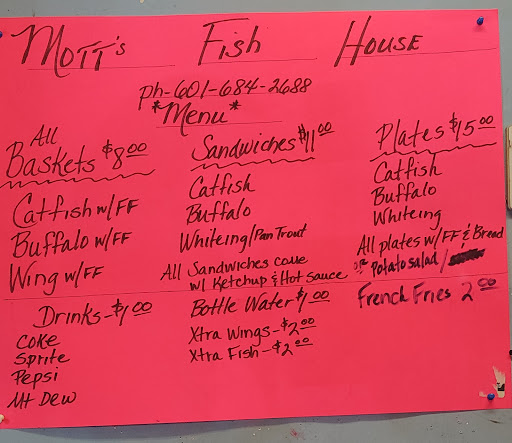 Mott's Fish House
ph-601-684-2688
*Menu*
All
Baskets $8.00
Catfish w/FF
Buffalo w/FF
Wing w/FF
Sandwiches $11.00
Catfish
Buffalo
Whiteing/Pan Trout
All Sandwiches come
w/ Ketchup & Hot sauce
Plates $15.00
Catfish
Buffalo
Whiteing
All plates w/FF & Bread
or Potato salad/
Drinks-$1.00
Coke
Sprite
Pepsi
Mt Dew
Bottle Water $1.00
Xtra Wings-$2.00
Xtra Fish-$2.00
French Fries 2.00